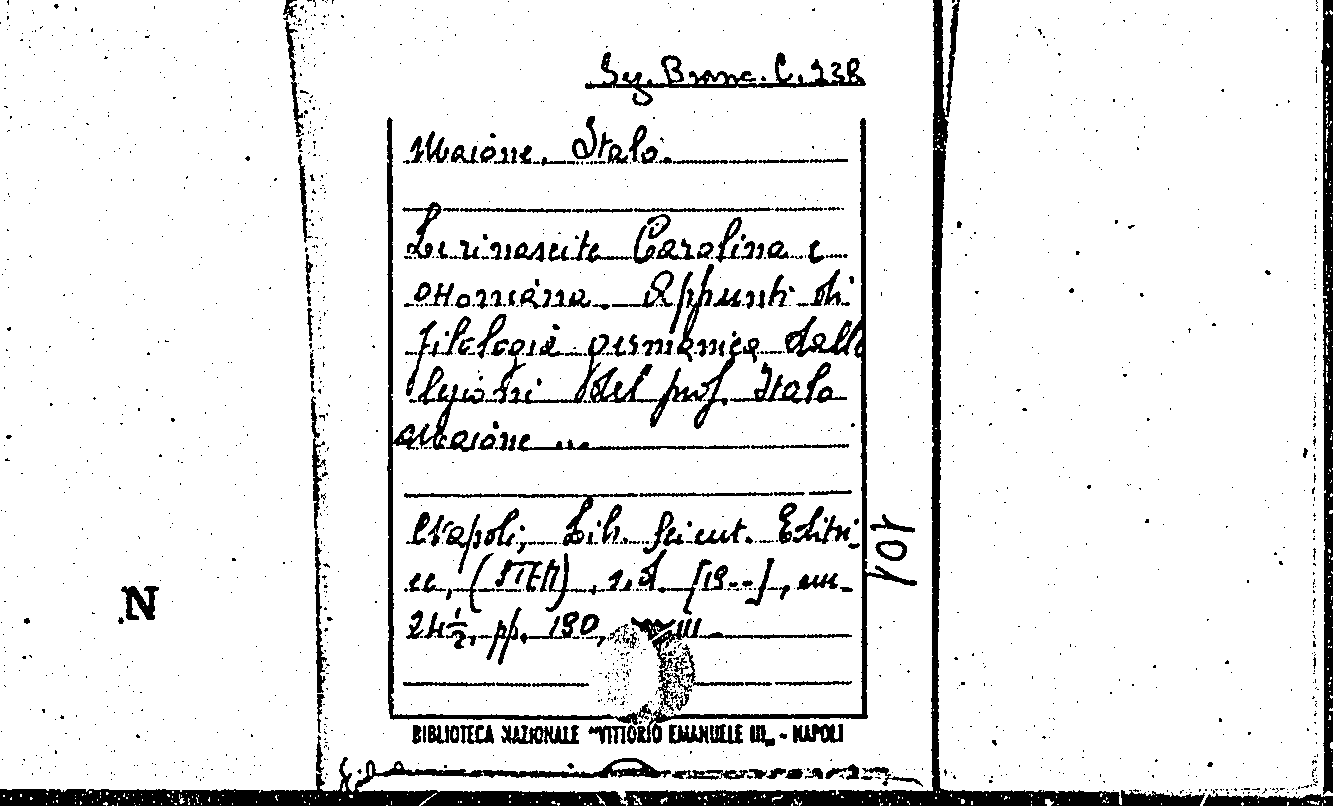 Sez. Branc. C. 238
Maione, Italo.
Le rinascite Carolina e
ottoniana. Appunti di
filologia germanica dalle
lezioni del prof. Italo
Maione ...
Napoli, Lib. Scient. Editri-
ce, (STEM), s.d. [19--], cm.
24½, pp. 190, III.
BIBLIOTECA NAZIONALE "VITTORIO EMANUELE III" - NAPOLI
101
N